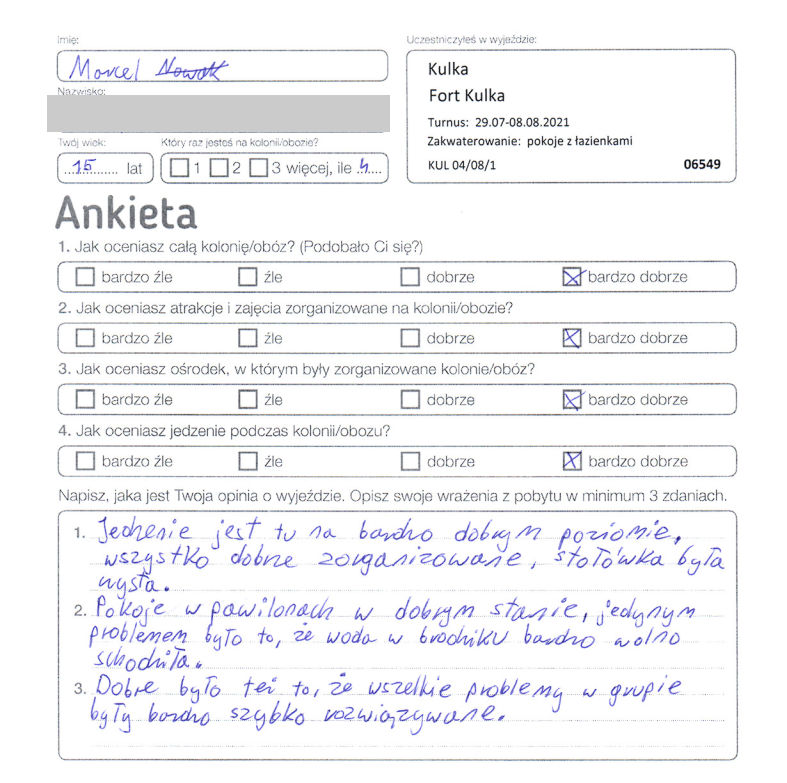 Imię:
Marcel Nowak
Nazwisko:
Twój wiek:
15 lat
Który raz jesteś na kolonii/obozie?
1 2 3 więcej, ile 4
Uczestniczyłeś w wyjeździe:
Kulka
Fort Kulka
Turnus: 29.07-08.08.2021
Zakwaterowanie: pokoje z łazienkami
KUL 04/08/1 06549
Ankieta
1. Jak oceniasz całą kolonię/obóz? (Podobało Ci się?)
bardzo źle źle dobrze bardzo dobrze
2. Jak oceniasz atrakcje i zajęcia zorganizowane na kolonii/obozie?
bardzo źle źle dobrze bardzo dobrze
3. Jak oceniasz ośrodek, w którym były zorganizowane kolonie/obóz?
bardzo źle źle dobrze bardzo dobrze
4. Jak oceniasz jedzenie podczas kolonii/obozu?
bardzo źle źle dobrze bardzo dobrze
Napisz, jaka jest Twoja opinia o wyjeździe. Opisz swoje wrażenia z pobytu w minimum 3 zdaniach.
1. Jedzenie jest tu na bardzo dobrym poziomie,
wszystko dobrze zorganizowane, stołówka była
czysta.
2. Pokoje w pawilonach w dobrym stanie, jedynym
problemem było to, że woda w brodziku bardzo wolno
schodziła.
3. Dobre było też to, że wszelkie problemy w grupie
były bardzo szybko rozwiązywane.